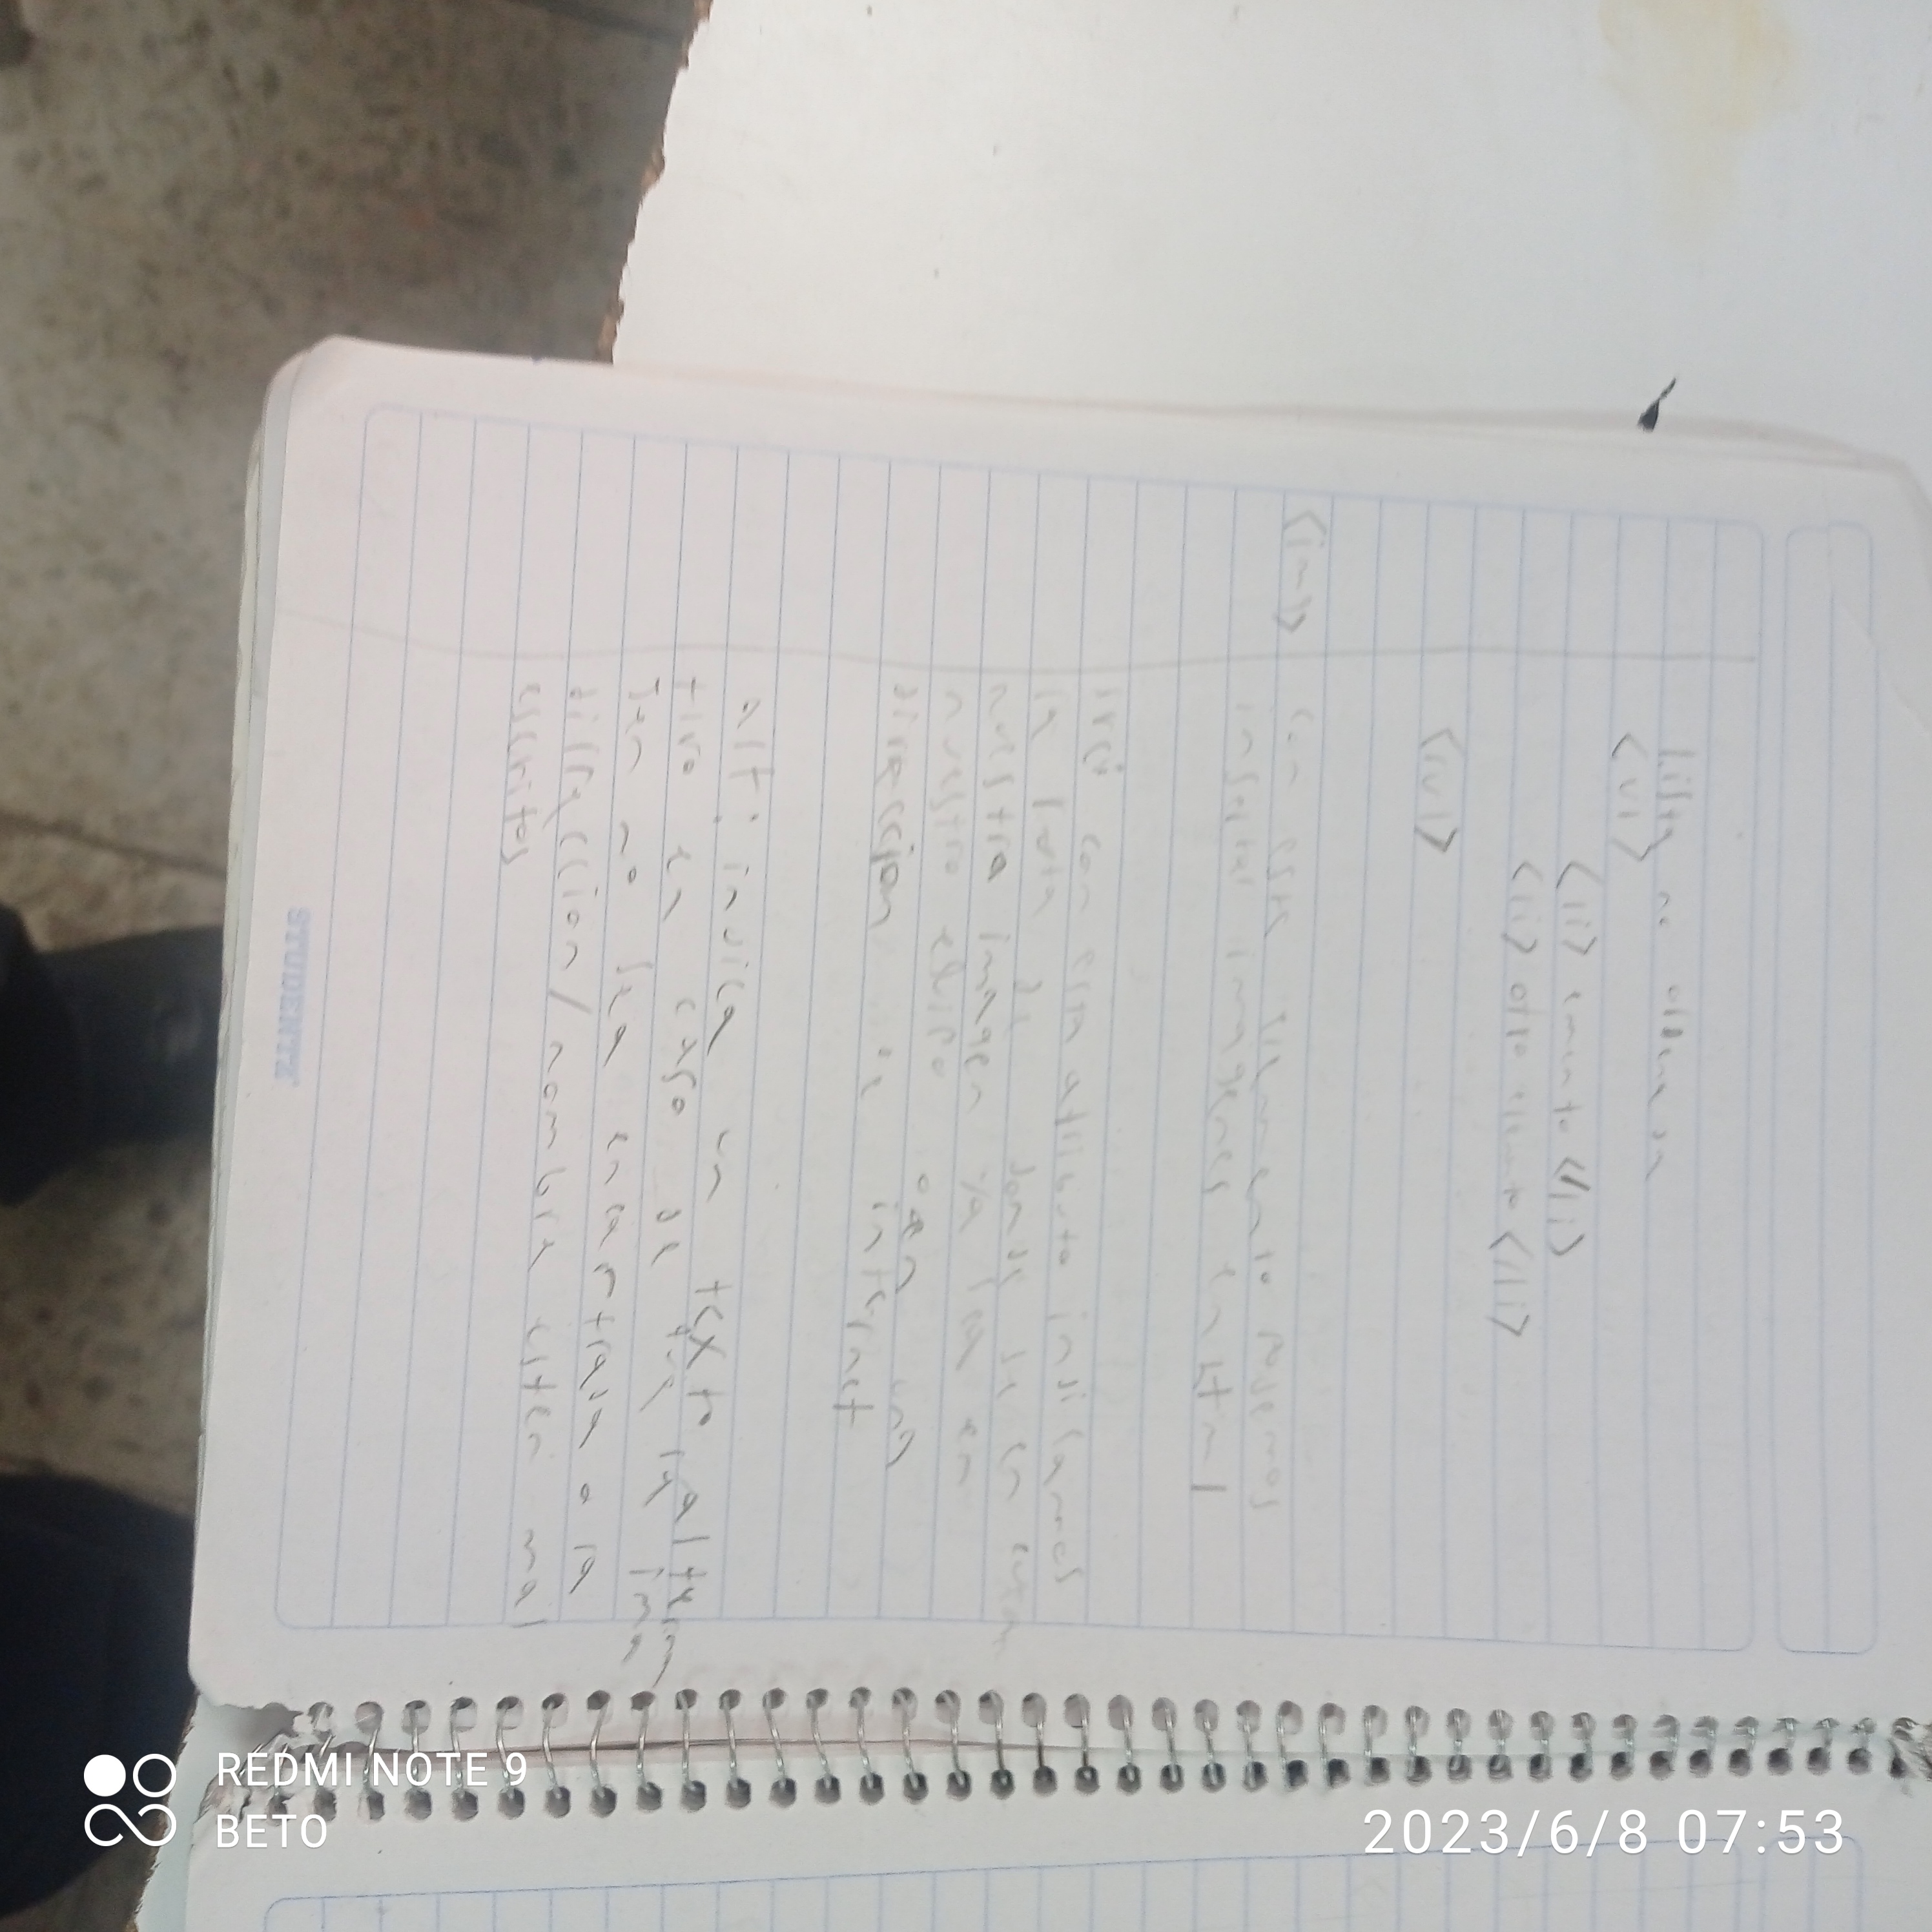 lista no ordenada
<ul>
<li> emento </li>
<li> otro elemento </li>
<ul>
<img> con este elemento podemos
insertar imagenes en html
src: con este atributo indicamos
la ruta de donde se en
nuestra imagen ya sea en
nuestro equipo o en una
direccion de internet
alt: indica un texto alterna
tivo en caso de que la ima
gen no sea encontrada o la
direccion / nombre esten mal
escritos
STUDENTZ
REDMI NOTE 9
BETO
2023/6/8 07:53